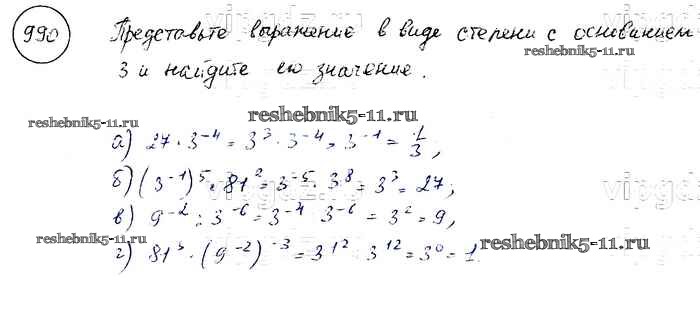 990 Представьте выражение в виде степени с основанием
3 и найдите его значение.
reshebnik5-11.ru
reshebnik5-11.ru
reshebnik5-11.ru
а) 27 · 3⁻⁴ = 3³ · 3⁻⁴ = 3⁻¹ = 1/3,
б) (3⁻¹)⁵ · 81² = 3⁻⁵ · 3⁸ = 3³ = 27;
в) 9⁻² : 3⁻⁶ = 3⁻⁴ 3⁻⁶ = 3² = 9,
reshebnik5-11.ru
reshebnik5-11.ru
г) 81³ · (9⁻²)⁻³ = 3¹² 3¹² = 3⁰ = 1